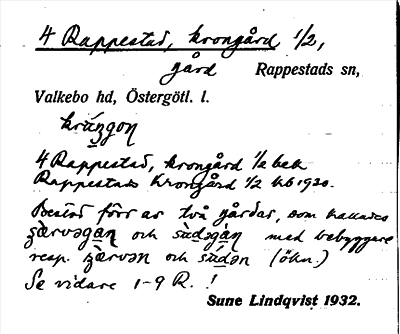 4 Rappestad, krongård 1/2,
gård Rappestads sn,
Valkebo hd, Östergötl. l.
4 Rappestad, krongård 1/2 bek
Rappestads Krongård 1/2 kb 1920.
Bestod förr av två gårdar, som kallades
och med bebyggare
resp. och (ökn.)
Se vidare 1-9 R. !
Sune Lindqvist 1932.